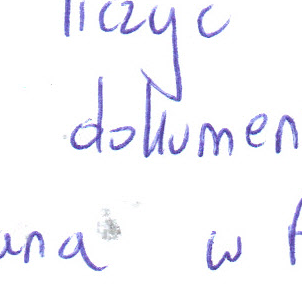 liczyc
dokumen
ana w f